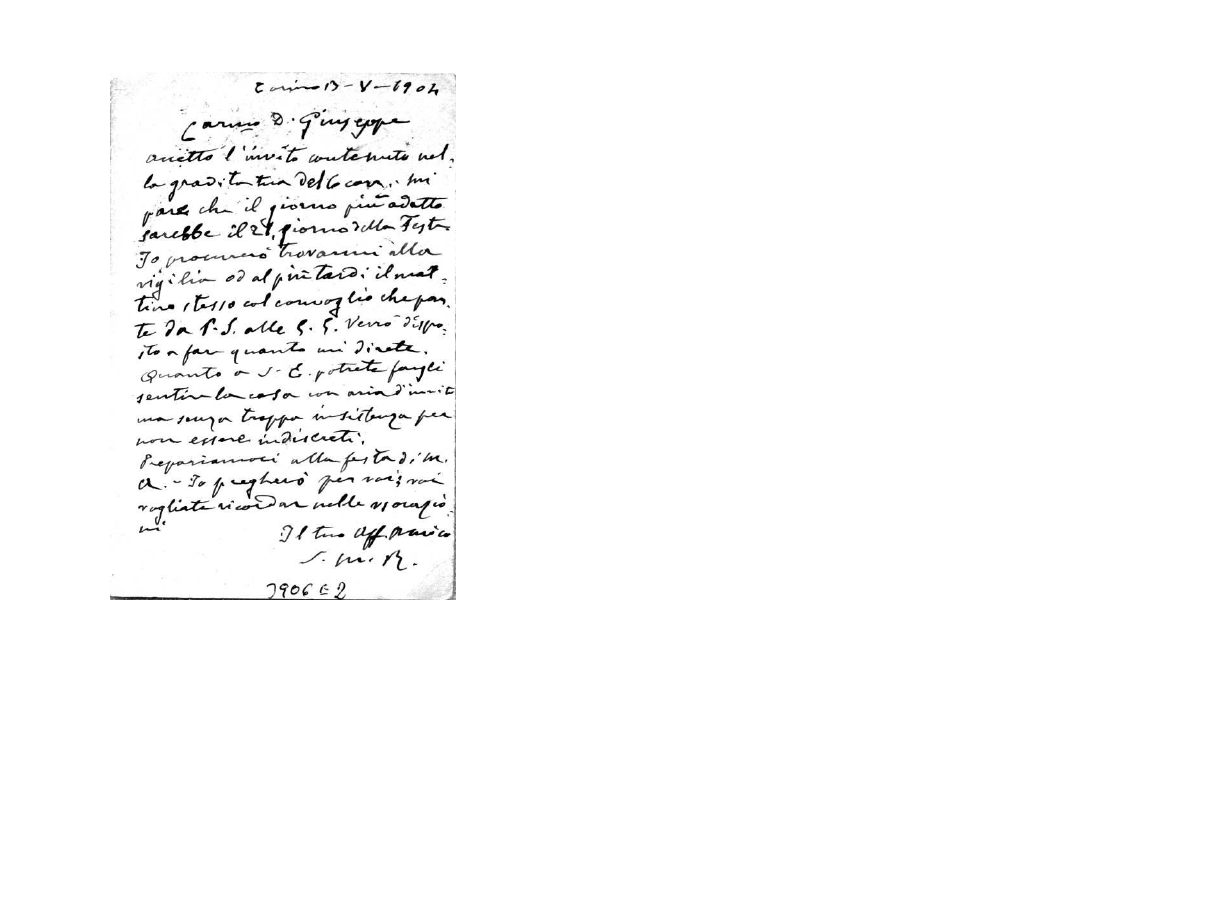 Torino 13-V-1904
Car.mo D. Giuseppe
accetto l'invito contenuto nel-
la gradita tua del 6 corr.. Mi
pare che il giorno più adatto
sarebbe il 21, giorno della Festa
Io procurerò trovarmi alla
vigilia od al più tardi il mat-
tino stesso col convoglio che par-
te da P.S. alle 5.5. Verrò dispo-
sto a far quanto mi direte.
Quanto a S.E. potrete fargli
sentire la cosa con aria d'invito
ma senza troppa insistenza per
non essere indiscreti.
Prepariamoci alla festa di M.
A. - Io pregherò per voi; voi
vogliate ricordar nelle vs orazio-
ni
Il tuo Aff. Amico
S. M. R.
3906 E 2